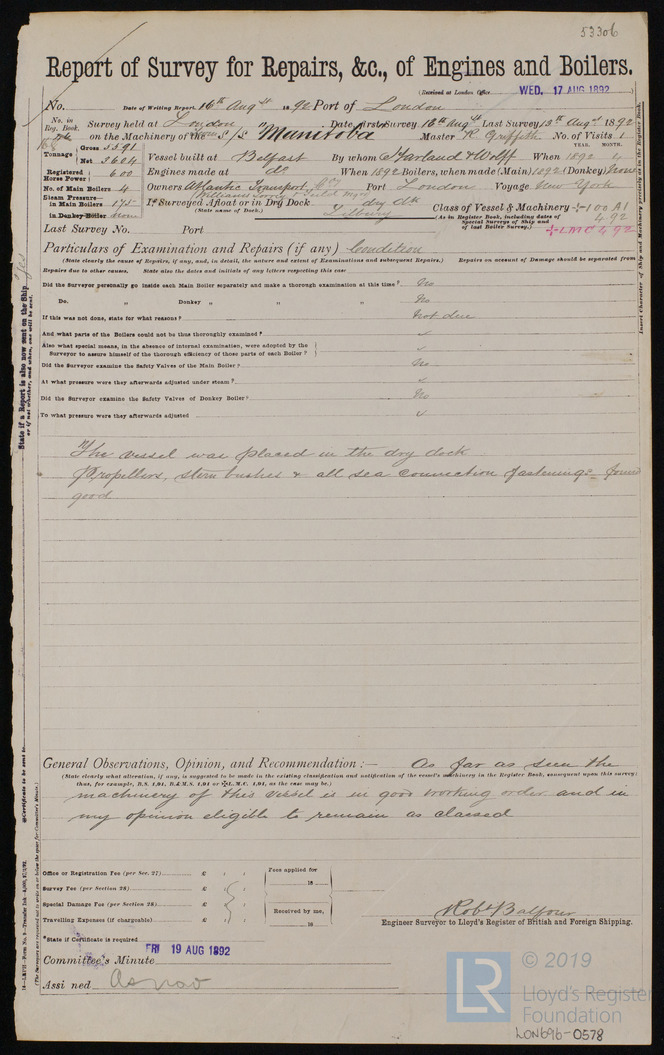 53306
Report of Survey for Repairs, &c., of Engines and Boilers.
(Received at London Office WED. 17 AUG 1892
No. Date of Writing Report. 16th Augst 1892 Port of London
No. in Reg. Book. Survey held at London Date, first Survey 16th Augst Last Survey 13th Augst 1892
on the Machinery of the S/S "Manitoba" Master R Griffith No. of Visits 1
Tonnage Gross 5591 Net 3604 Vessel built at Belfast By whom Harland & Wolff When YEAR. 1892 MONTH. 4
Registered Horse Power 600 Engines made at do When 1892 Boilers, when made (Main) 1892 (Donkey) None
No. of Main Boilers 4 Owners Atlantic Transport Port London Voyage New York
Steam Pressure in Main Boilers 175 If Surveyed Afloat or in Dry Dock dry dk Class of Vessel & Machinery 100 A1
in Donkey Boiler (State name of Dock.) Tilbury (As in Register Book, including dates of Special Surveys of Ship and of last Boiler Survey.) 4.92
Last Survey No. Port LMC 4 92
Particulars of Examination and Repairs (if any) Condition
(State clearly the cause of Repairs, if any, and, in detail, the nature and extent of Examinations and subsequent Repairs.) Repairs on account of Damage should be separated from
Repairs due to other causes. State also the dates and initials of any letters respecting this case
Did the Surveyor personally go inside each Main Boiler separately and make a thorough examination at this time? No
Do. „ Donkey „ „ No
If this was not done, state for what reasons? Not due
And what parts of the Boilers could not be thus thoroughly examined?
Also what special means, in the absence of internal examination, were adopted by the
Surveyor to assure himself of the thorough efficiency of those parts of each Boiler?
Did the Surveyor examine the Safety Valves of the Main Boiler? No
At what pressure were they afterwards adjusted under steam?
Did the Surveyor examine the Safety Valves of Donkey Boiler? No
To what pressure were they afterwards adjusted
The vessel was placed in the dry dock
Propellers, stern bushes & all sea connection fastenings found
good
General Observations, Opinion, and Recommendation :— As far as seen the
(State clearly what alteration, if any, is suggested to be made in the existing classification and notification of the vessel's machinery in the Register Book, consequent upon this survey;
thus, for example, B.S. 1,91, B.&M.S. 1,91 or L.M.C. 1,91, as the case may be.)
machinery of this vessel is in good working order and in
my opinion eligible to remain as classed
Office or Registration Fee (per Sec. 27) £ Fees applied for
Survey Fee (per Section 28) £ 18
Special Damage Fee (per Section 28) £ Received by me,
Travelling Expenses (if chargeable) £ 18
Robt Balfour
Engineer Surveyor to Lloyd's Register of British and Foreign Shipping.
*State if Certificate is required
Committee's Minute FRI 19 AUG 1892
Assigned As now
State if a Report is also now sent on the Ship Yes
or if not whether, and when, one will be sent.
Insert Character of Ship and Machinery precisely as in the Register Book
LR © 2019
Lloyd's Register
Foundation
LON696-0578